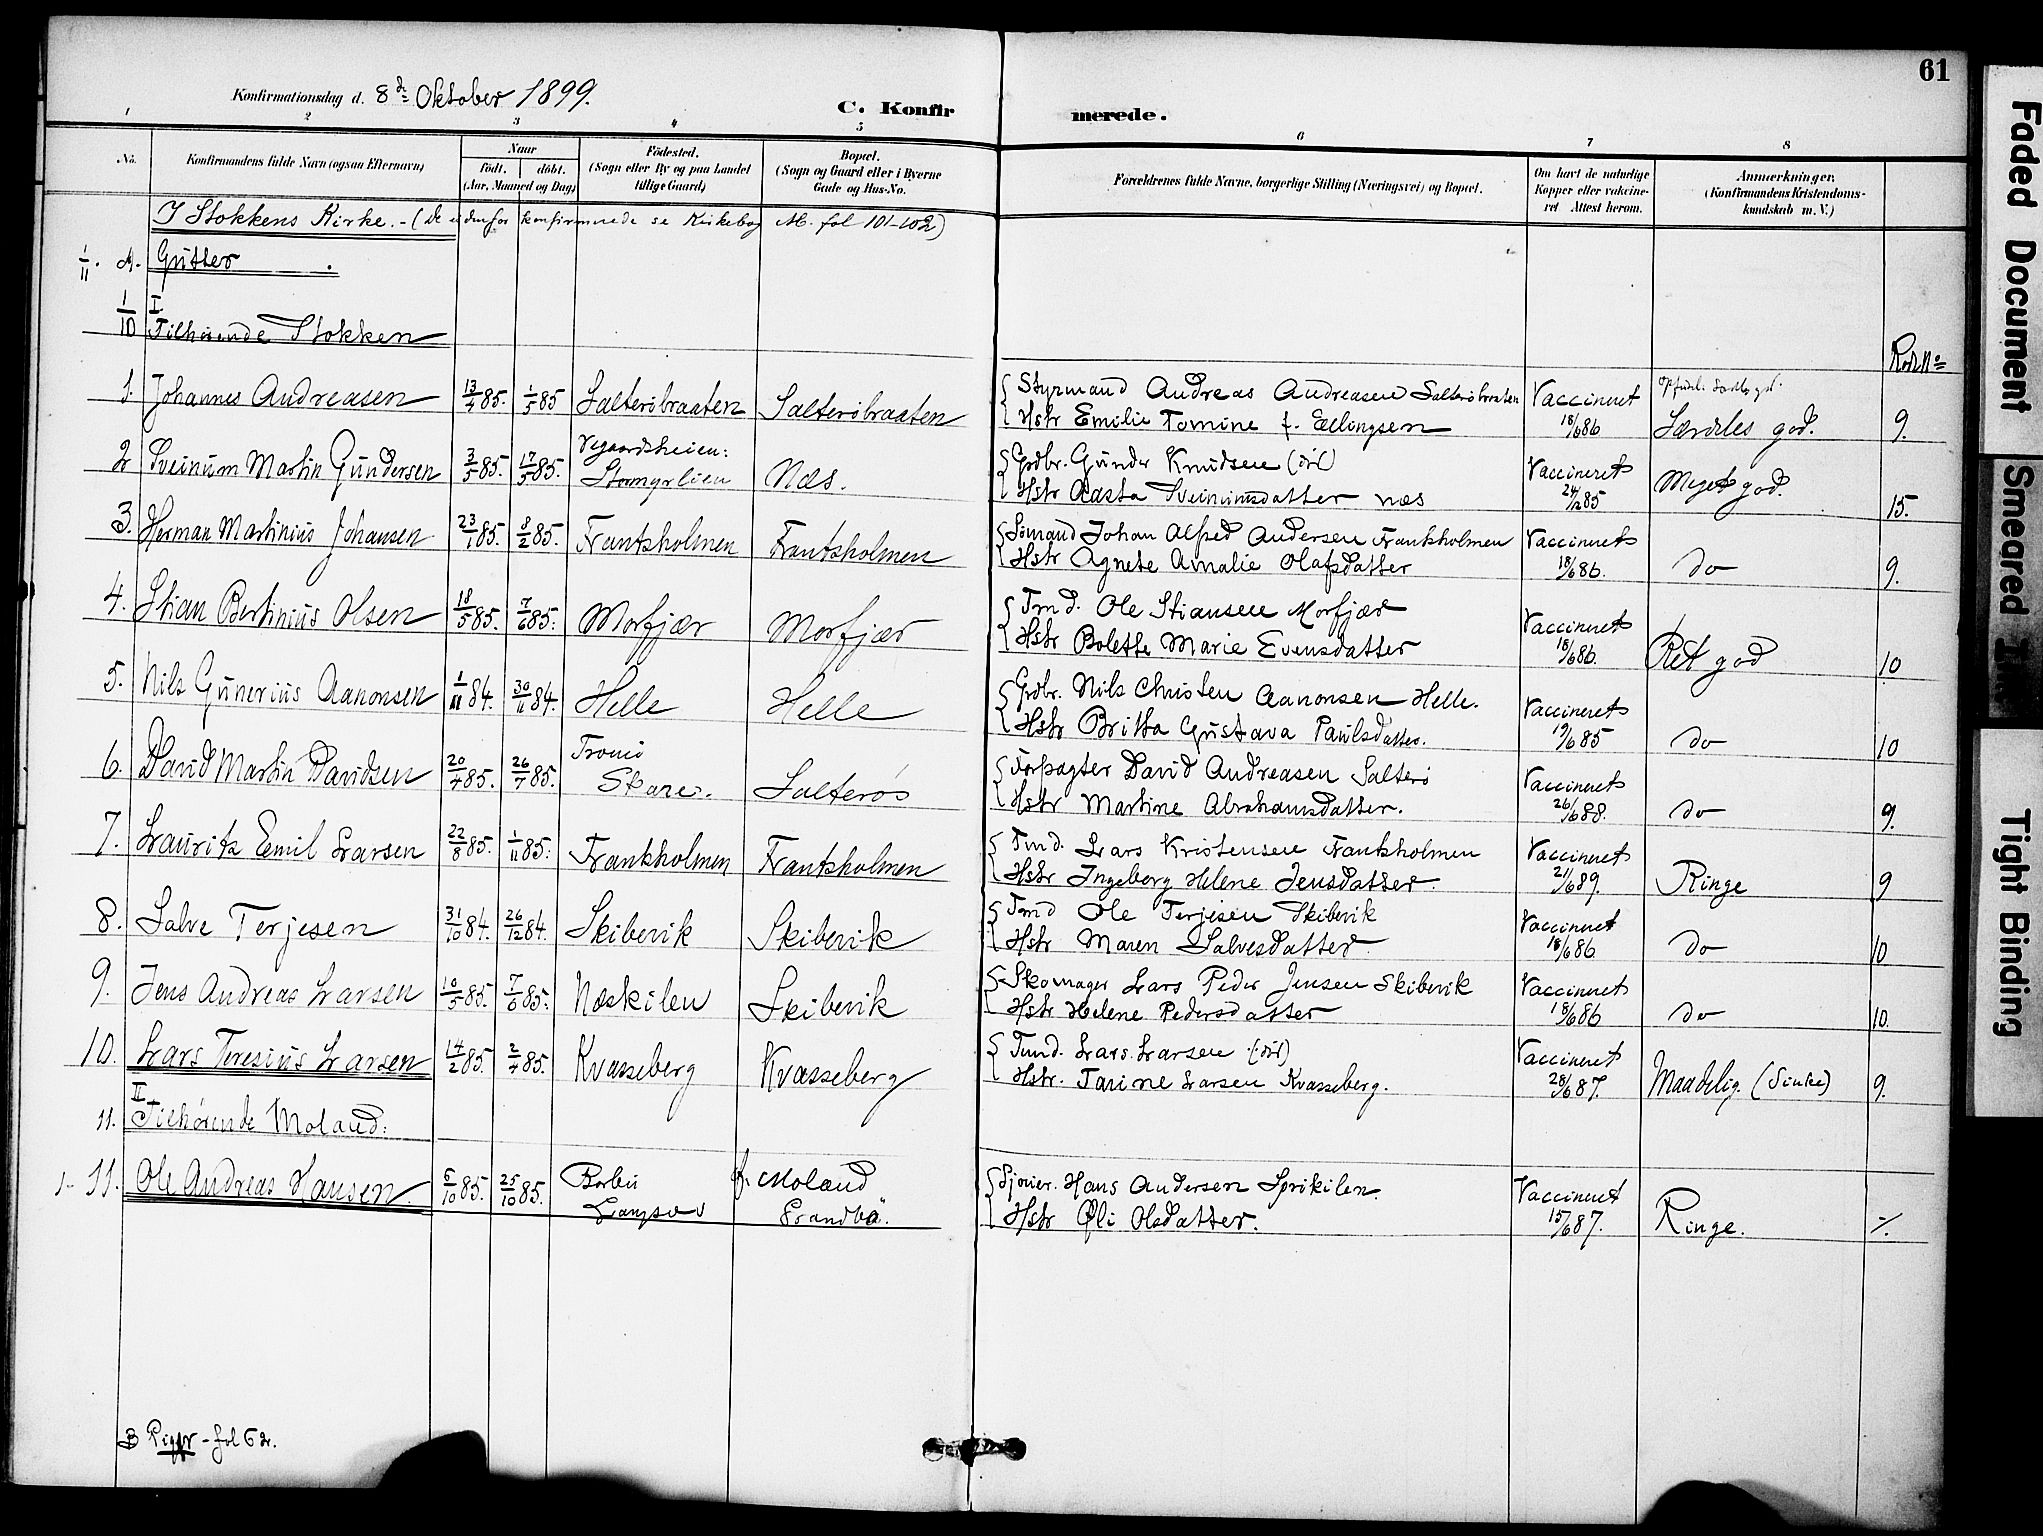 61
Konfirmationsdag d. 8de Oktober 1899.
C. Konfirmerede.
1 2 3 4 5 6 7 8
No.
Konfirmandens fulde Navn (ogsaa Efternavn)
Naar
født. døbt.
(Aar, Maaned og Dag)
Fødested.
(Sogn eller By og paa Landet
tillige Gaard)
Bopæl.
(Sogn og Gaard eller i Byerne
Gade og Hus-No.
Forældrenes fulde Navne, borgerlige Stilling (Næringsvei) og Bopæl.
Om havt de naturlige
Kopper eller vaccine-
ret Attest herom.
Anmærkninger.
(Konfirmandens Kristendoms-
kundskab m. V.)
I Stokkens Kirke. - (de udenfor konfirmerede se Kirkebog M. fol 101-102)
1/11. A. Gutter
1/10 I
Tilhørende Stokken
Rode No
1. Johannes Andreasen 13/4 85. 1/5 85 Salterøbraaten Salterøbraaten Styrmand Andreas Andreasen Salterøbraaten Vaccineret
Hstr Emilie Tomine f. Ellingsen 18/6 86 Særdeles god. 9.
2 Sveinum Martin Gundersen 3/5 85. 17/5 85. Vegaardsheien: Stormyrlien Næs. Grdbr. Gunder Knudsen (død) Vaccineret
Hstr Aasta Sveinumsdatter næs 24/12 85 Meget god. 15.
3. Herman Martinius Johansen 23/1 85. 8/2 85. Frantsholmen Frantsholmen Sømand Johan Alfred Andersen Frantsholmen Vaccineret
Hstr Agnete Amalie Olafsdatter 18/6 86. do 9.
4. Stian Bertinius Olsen 18/5 85. 7/6 85. Morfjær Morfjær Tmd. Ole Stiansen Morfjær Vaccineret
Hstr Bolette Marie Evensdatter 18/6 86. Ret god 10
5. Nils Gunerius Aanonsen 1/11 84. 30/11 84. Helle Helle Grdbr. Nils Christen Aanonsen Helle. Vaccineret
Hstr Britta Gustava Paulsdatter. 19/6 85 do 10
6. David Martin Davidsen 20/4 85. 26/7 85. Tromø Skare. Salterøs Forpagter David Andreasen Salterø Vaccineret
Hstr Martine Abrahamsdatter. 26/6 88. do 9.
7. Lauritz Emil Larsen 22/8 85. 1/11 85. Frantsholmen Frantsholmen Tmd. Lars Kristensen Frantsholmen Vaccineret
Hstr Ingeborg Helene Jensdatter. 21/6 89. Ringe 9
8. Salve Terjesen 31/10 84. 26/12 84. Skibevik Skibevik Tmd Ole Terjesen Skibevik Vaccineret
Hstr Maren Salvesdatter. 18/6 86. do 10
9. Jens Andreas Larsen 10/5 85. 7/6 85. Næskilen Skibevik Skomager Lars Peder Jensen Skibevik Vaccineret
Hstr Helene Pedersdatter 18/6 86 do 10.
10. Lars Teresius Larsen 14/2 85. 2/4 85. Kvasseberg Kvasseberg Tmd. Lars Larsen (død) Vaccineret
Hstr. Tarine Larsen Kvasseberg. 28/6 87. Maadelig. (Sinke) 9.
II
11. Tilhørende Moland.
1- 11. Ole Andreas Hansen. 6/10 85. 25/10 85. Barbu Langsæv f. Moland Hans Andersen Vaccineret
Hstr Olsdatter. 15/6 87. Ringe. ./.
B Piger - fol 62.
Faded Document Smeared Ink Tight Binding